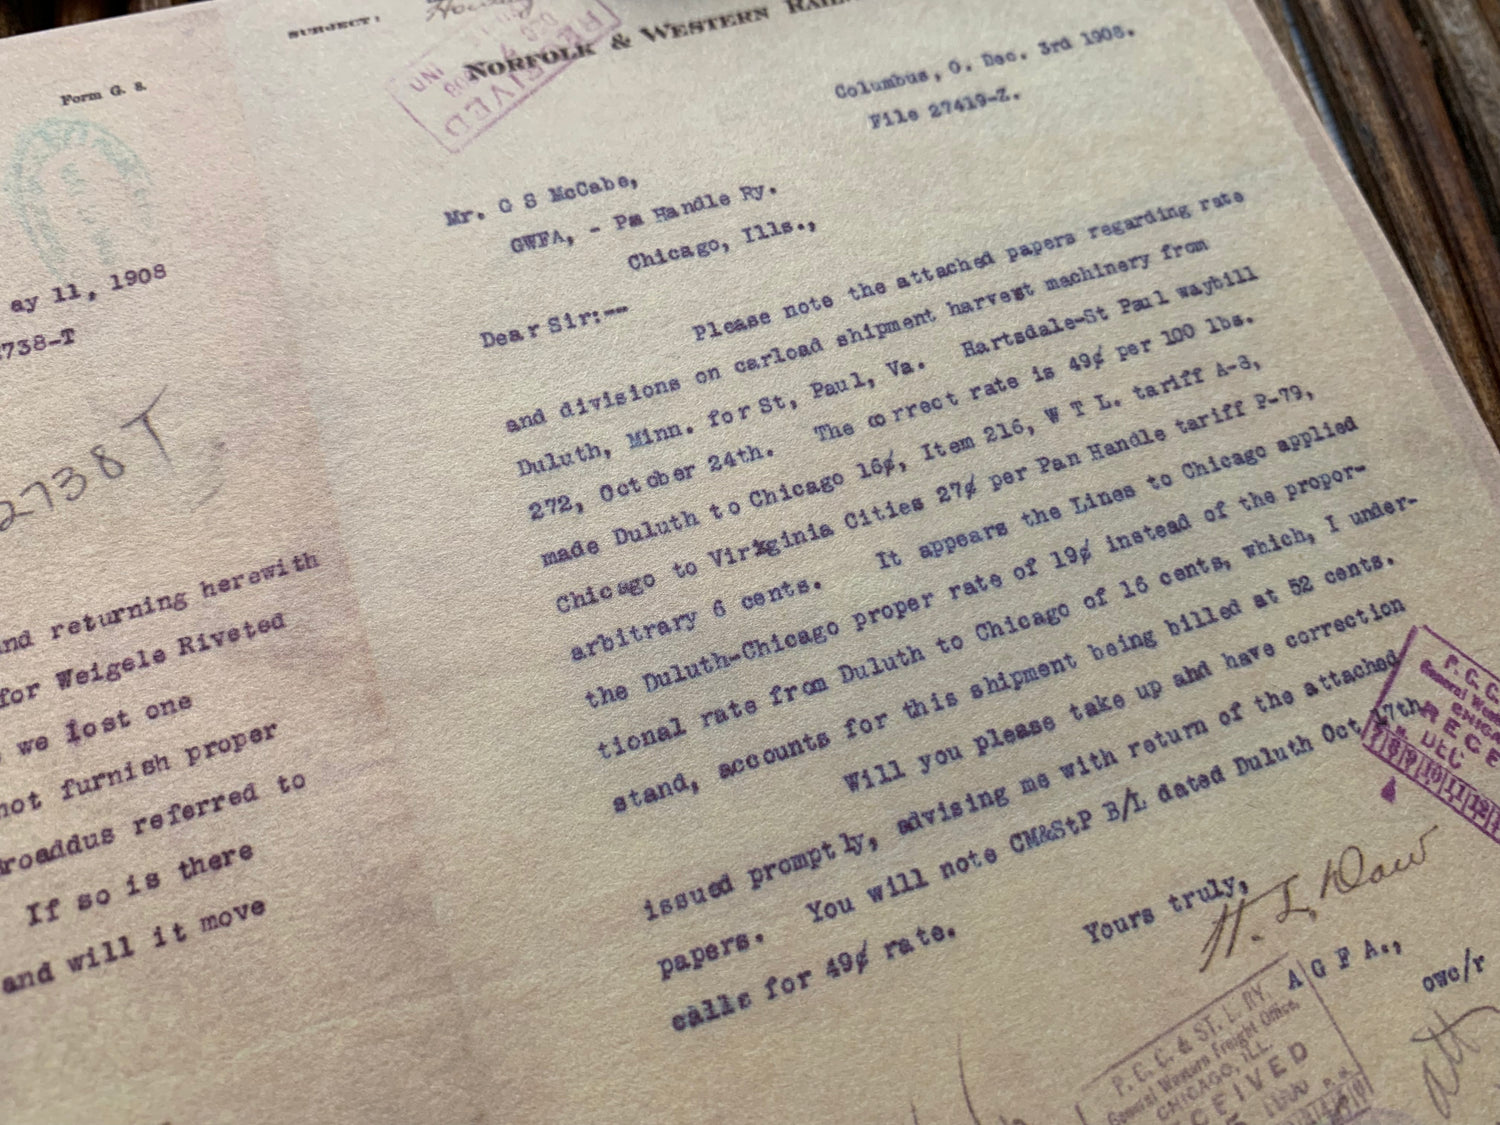 SUBJECT:
NORFOLK & WESTERN
RECEIVED
Form G. S.
Columbus, O. Dec. 3rd 1908.
File 27419-Z.
Mr. C S McCabe,
GWFA, - Pa Handle Ry.
Chicago, Ills.,
Dear Sir:--
Please note the attached papers regarding rate
and divisions on carload shipment harvest machinery from
Duluth, Minn. for St, Paul, Va. Hartsdale-St Paul waybill
272, October 24th. The correct rate is 49¢ per 100 lbs.
made Duluth to Chicago 16¢, Item 216, W T L. tariff A-3,
Chicago to Virginia Cities 27¢ per Pan Handle tariff P-79,
arbitrary 6 cents. It appears the Lines to Chicago applied
the Duluth-Chicago proper rate of 19¢ instead of the propor-
tional rate from Duluth to Chicago of 16 cents, which, I under-
stand, accounts for this shipment being billed at 52 cents.
Will you please take up and have correction
issued promptly, advising me with return of the attached
papers. You will note CM&StP B/L dated Duluth Oct 17th
calls for 49¢ rate.
Yours truly,
A G F A.,
owc/r
ay 11, 1908
738-T
2738T
nd returning herewith
for Weigele Riveted
we lost one
not furnish proper
roaddus referred to
If so is there
and will it move
P. C. C. & ST. L. RY.
General Western Freight Office,
CHICAGO, ILL.
DEC